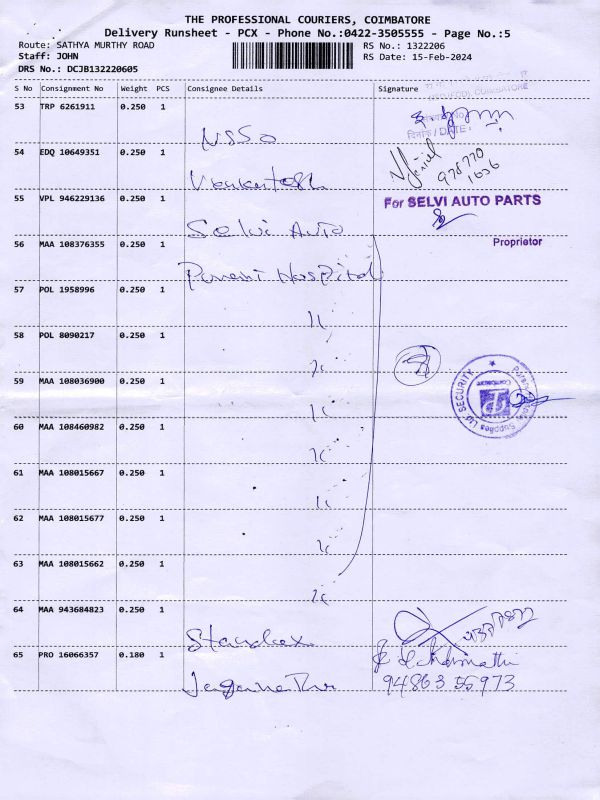 THE PROFESSIONAL COURIERS, COIMBATORE
Delivery Runsheet - PCX - Phone No.:0422-3505555 - Page No.:5
Route: SATHYA MURTHY ROAD RS No.: 1322206
Staff: JOHN RS Date: 15-Feb-2024
DRS No.: DCJB132220605
S No Consignment No Weight PCS Consignee Details Signature
53 TRP 6261911 0.250 1 NSSO
दिनांक / DATE
54 EDQ 10649351 0.250 1
55 VPL 946229136 0.250 1 Selvi Auto
For SELVI AUTO PARTS
Proprietor
56 MAA 108376355 0.250 1 Hospital
57 POL 1958996 0.250 1 "
58 POL 8090217 0.250 1 "
59 MAA 108036900 0.250 1 "
60 MAA 108460982 0.250 1 "
61 MAA 108015667 0.250 1 "
62 MAA 108015677 0.250 1 "
63 MAA 108015662 0.250 1 "
SECURITY
64 MAA 943684823 0.250 1
65 PRO 16066357 0.180 1
94863 55973